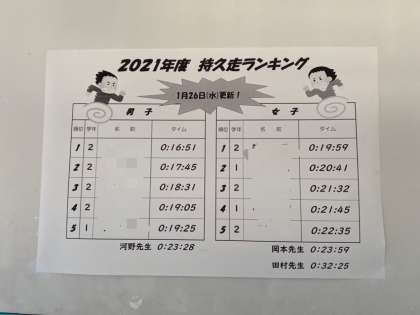 2021年度 持久走ランキング
1月26日(水)更新！
男 子
順位 学年 名 前 タイム
1 2 0:16:51
2 2 0:17:45
3 2 0:18:31
4 2 0:19:05
5 1 0:19:25
河野先生 0:23:28
女 子
順位 学年 名 前 タイム
1 2 0:19:59
2 1 0:20:41
3 2 0:21:32
4 1 0:21:45
5 2 0:22:35
岡本先生 0:23:59
田村先生 0:32:25